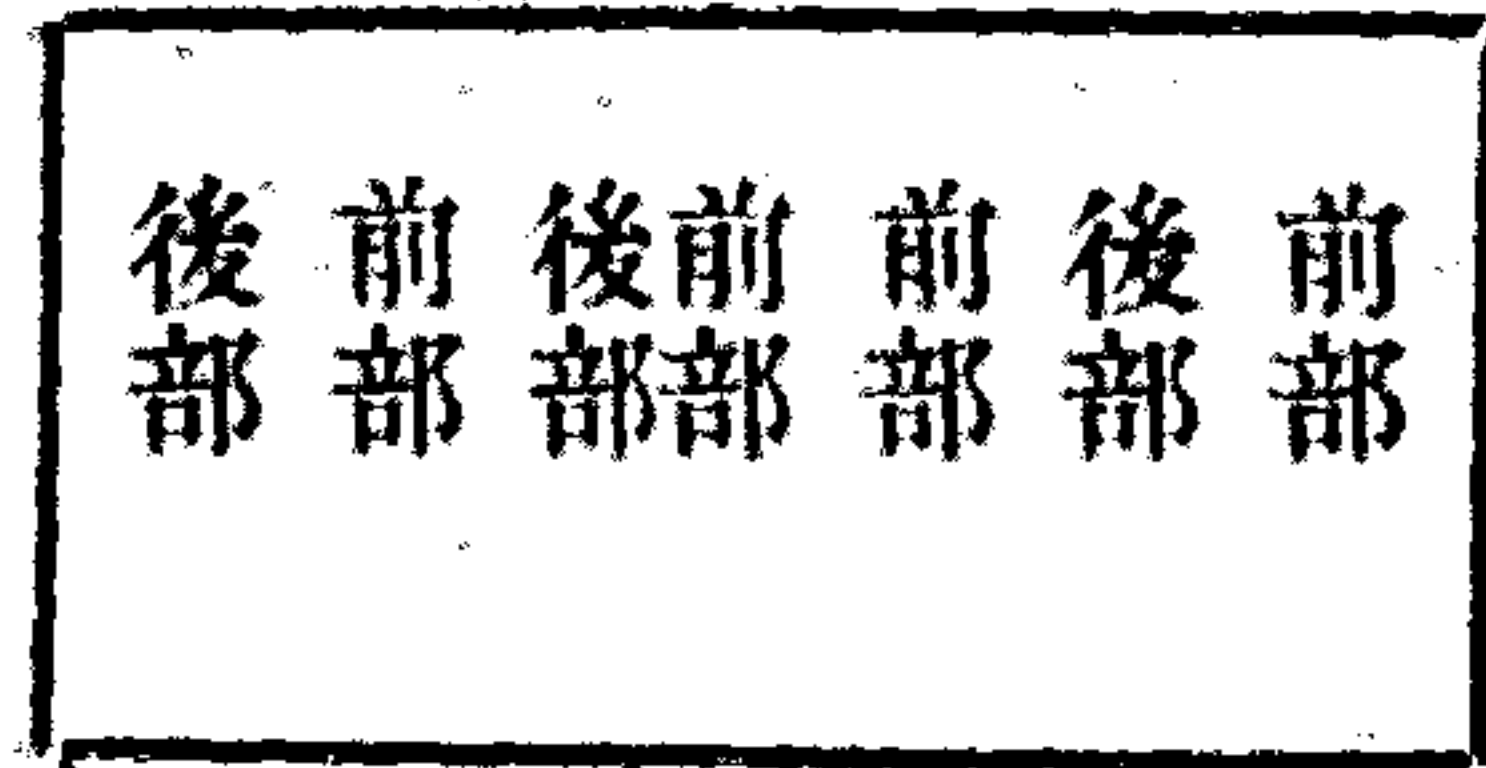 前部
後部
前部
前部
後部
前部
後部